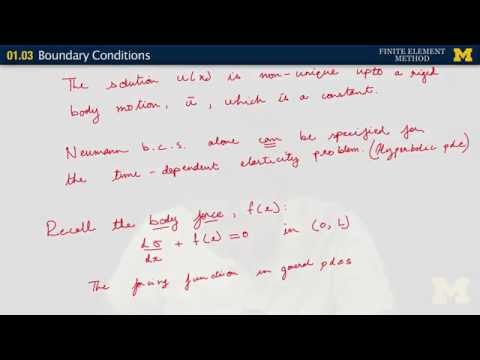 01.03 Boundary Conditions
FINITE ELEMENT
METHOD
M
The solution u(x) is non-unique upto a rigid
body motion, ū, which is a constant.
Neumann b.c.s. alone can be specified for
the time-dependent elasticity problem. (Hyperbolic pde)
Recall the body force, f(x):
dσ/dx + f(x) = 0 in (0, L)
The forcing function in general pdes
M